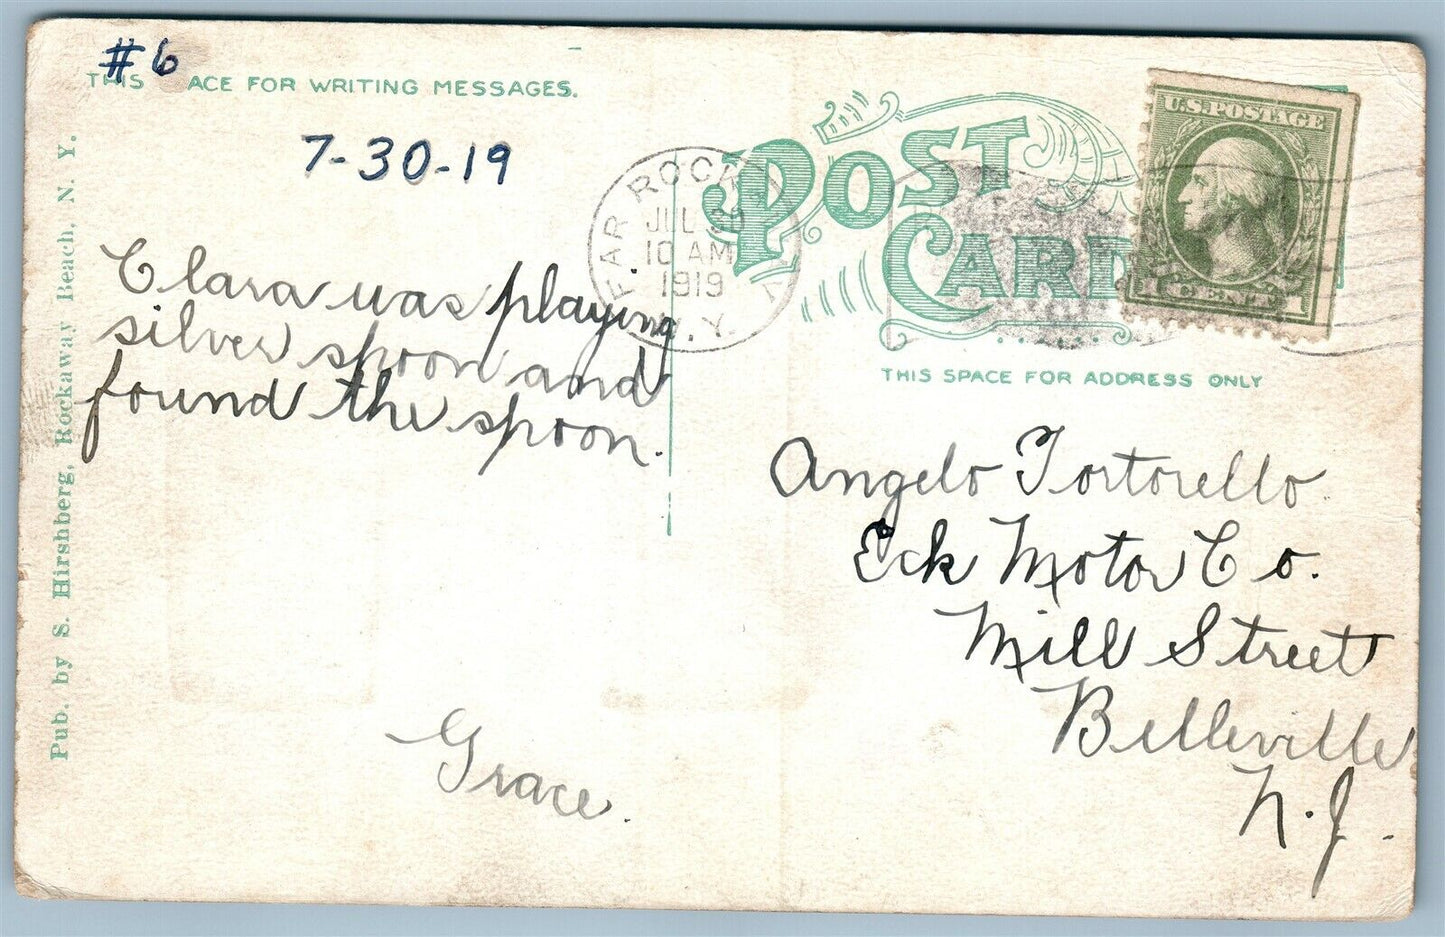 #6
THIS SPACE FOR WRITING MESSAGES.
7-30-19
Clara was playing
silver spoon and
found the spoon.
Grace.
Pub. by S. Hirshberg, Rockaway Beach, N. Y.
FAR ROCKAWAY
N.Y.
JUL 30
10 AM
1919
POST
CARD
U.S. POSTAGE
1 CENT 1
THIS SPACE FOR ADDRESS ONLY
Angelo Tortorello
Eck Motor Co.
Mill Street
Belleville
N.J.